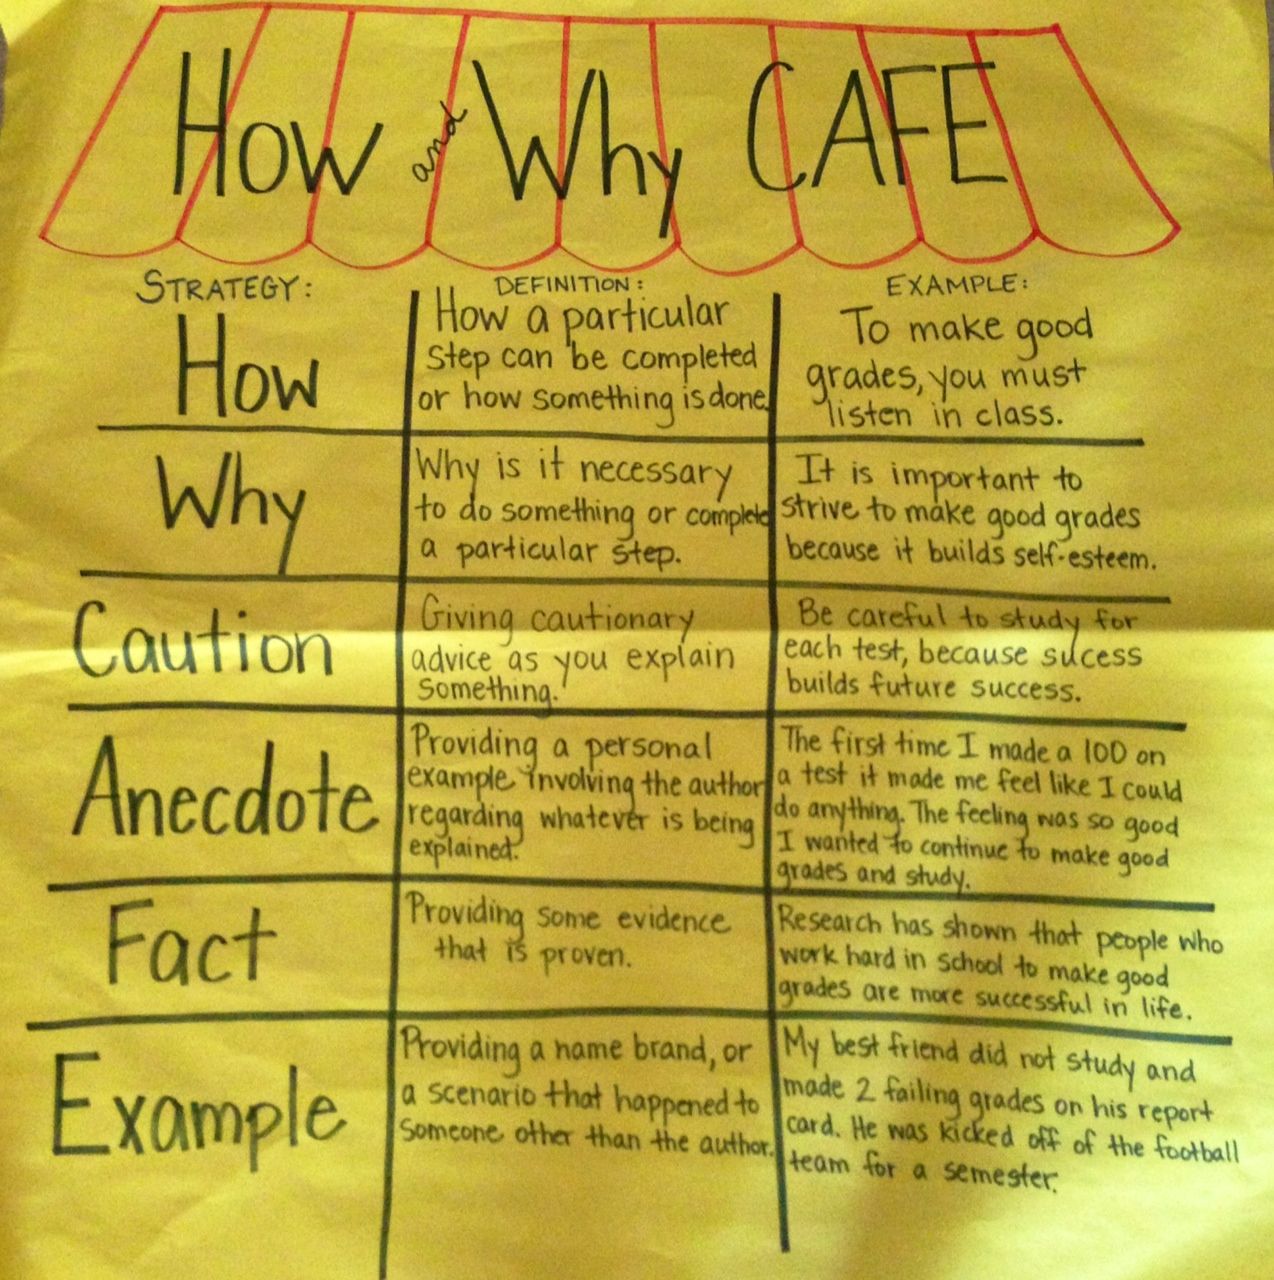 How and Why CAFE
STRATEGY:
DEFINITION:
EXAMPLE:
How
How a particular
step can be completed
or how something is done.
To make good
grades, you must
listen in class.
Why
Why is it necessary
to do something or complete
a particular step.
It is important to
strive to make good grades
because it builds self-esteem.
Caution
Giving cautionary
advice as you explain
something.
Be careful to study for
each test, because sucess
builds future success.
Anecdote
Providing a personal
example involving the author
regarding whatever is being
explained.
The first time I made a 100 on
a test it made me feel like I could
do anything. The feeling was so good
I wanted to continue to make good
grades and study.
Fact
Providing some evidence
that is proven.
Research has shown that people who
work hard in school to make good
grades are more successful in life.
Example
Providing a name brand, or
a scenario that happened to
someone other than the author.
My best friend did not study and
made 2 failing grades on his report
card. He was kicked off of the football
team for a semester.